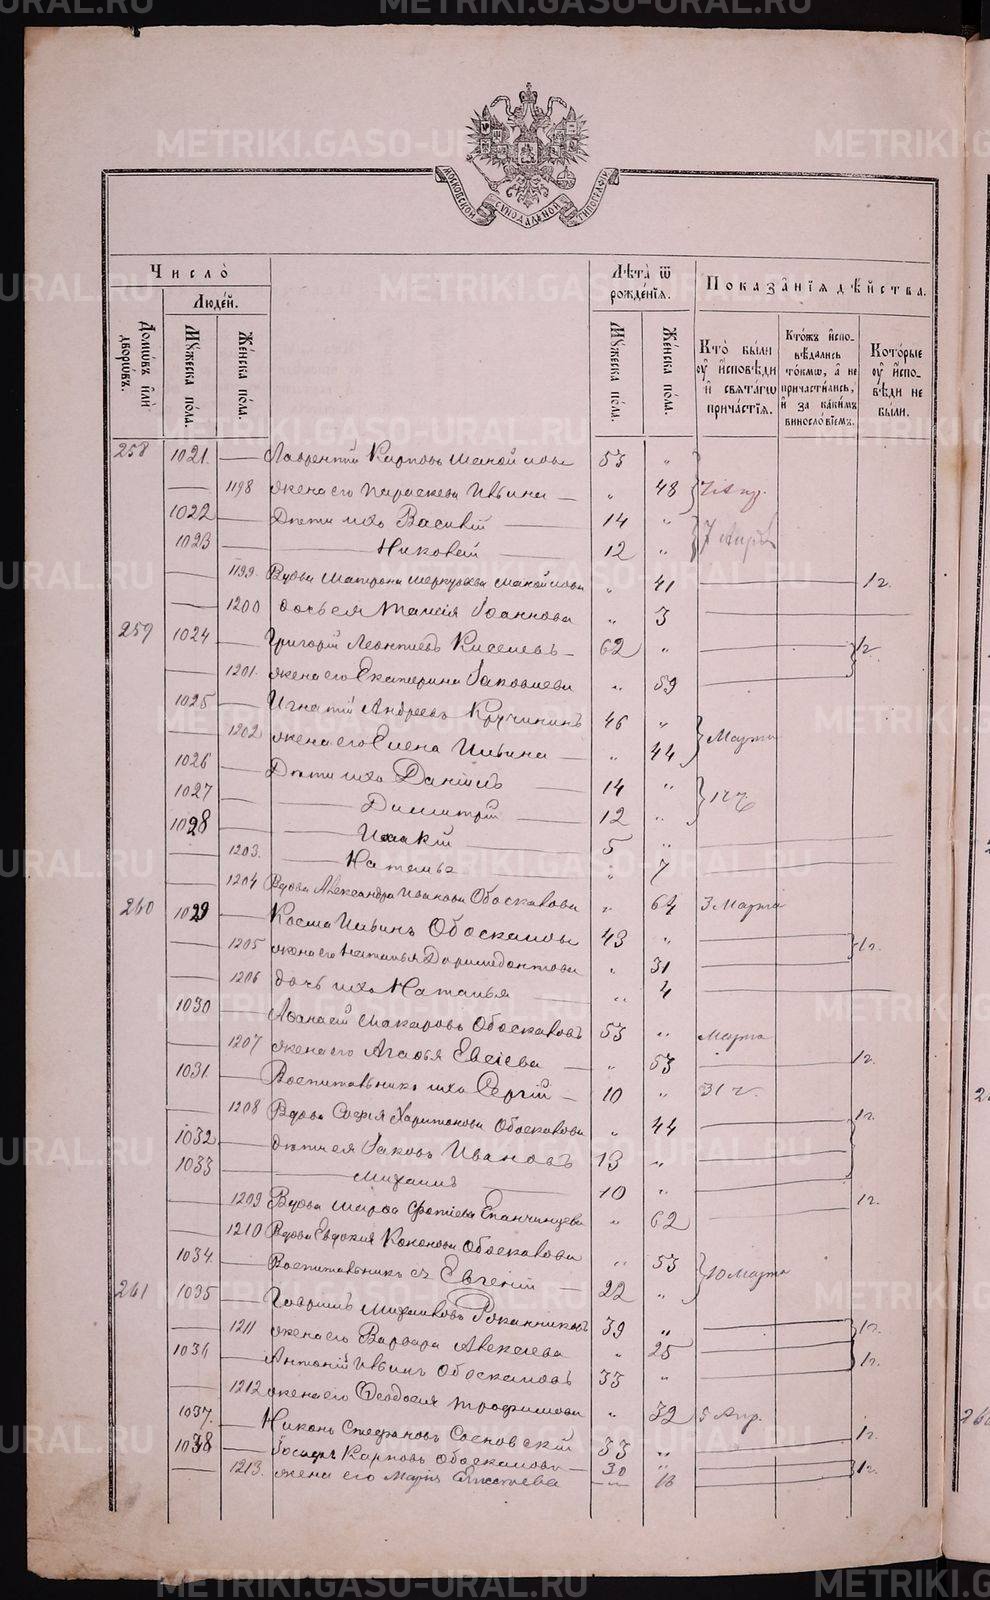 МОСКОВСКОЙ СѴНОДАЛЬНОЙ ТИПОГРАФІИ
Число̀
Людей.
Домѡвъ и҆лѝ дворѡвъ.
Мꙋжеска по́ла.
Же́нска по́ла.
Лѣ́та ѿ рожде́нїѧ.
Мꙋжеска по́ла.
Же́нска по́ла.
Показа́нїѧ дѣ́йства.
Кто̀ бы́ли ᲂу҆ и҆сповѣди и҆ свѧта́гѡ прича́стїѧ.
Кто́жъ и҆спо-вѣ́дались то́кмѡ, а҆ не причасти́лись, и҆ за каки́мъ винослові́емъ.
Кото́рые ᲂу҆ и҆спо-вѣ́ди не бы́ли.
258 1021. Лаврентій Карповъ 53 "
1198 жена его Параскева Ильина — " 48
1022 Дѣти ихъ Василій 14 " 7 Апр
1023 Никовей 12 "
1199 Вдова Матрона Меркурьева " 41 1 г.
1200 дочь ея Таисія Іоаннова " 3
259 1024 Григорій Леонтіевъ Киселевъ — 62 " 1 г.
1201. жена его Екатерина Іаковлева " 59
1025 Игнатій Андреевъ Кручининъ 46 " Марта
1202 жена его Елена Ильина — " 44
1026 Дѣти ихъ Даніилъ 14 " 12 ч
1027 Димитрій 12 "
1028 Исаакій 5 "
1203. Наталья " 7
1204 Вдова Александра Иванова Обоскалова " 64 3 Марта
260 1029 Косма Ильинъ Обоскаловъ 43 " 1 г.
1205 жена его Наталья Доримедонтова " 31
1206 дочь ихъ Наталья " 4
1030 Афанасій Макаровъ Обоскаловъ 53 " Марта
1207 жена его Агафья Евсіева — " 53 1 г.
1031. Воспитанникъ ихъ Сергій — 10 " 31 ч.
1208 Вдова Софія Харитонова Обоскалова " 44 1 г.
1032 дѣти ея Іаковъ Ивановъ 13 "
1033 Михаилъ 10 "
1209 Вдова Марфа Фотіева Епанчинцева " 62 1 г.
1210 Вдова Евдокия Кононова Обоскалова " 53 10 Марта
1034. Воспитанникъ ея Евгеній — 22 "
261 1035 Гавріилъ Михаиловъ 39 " 1 г.
1211 жена его Варвара Алексіева " 25
1036 Антоній Ильинъ Обоскаловъ 33 " 1 г.
1212 жена его Ѳеодосія Трофимова " 32 5 Апр.
1037. Никонъ Стефановъ Сосновскій 33 " 1 г.
1038 Іосифъ Карповъ Обоскаловъ — 30 " 1 г.
1213. жена его Марія " 18
METRIKI.GASO-URAL.RU